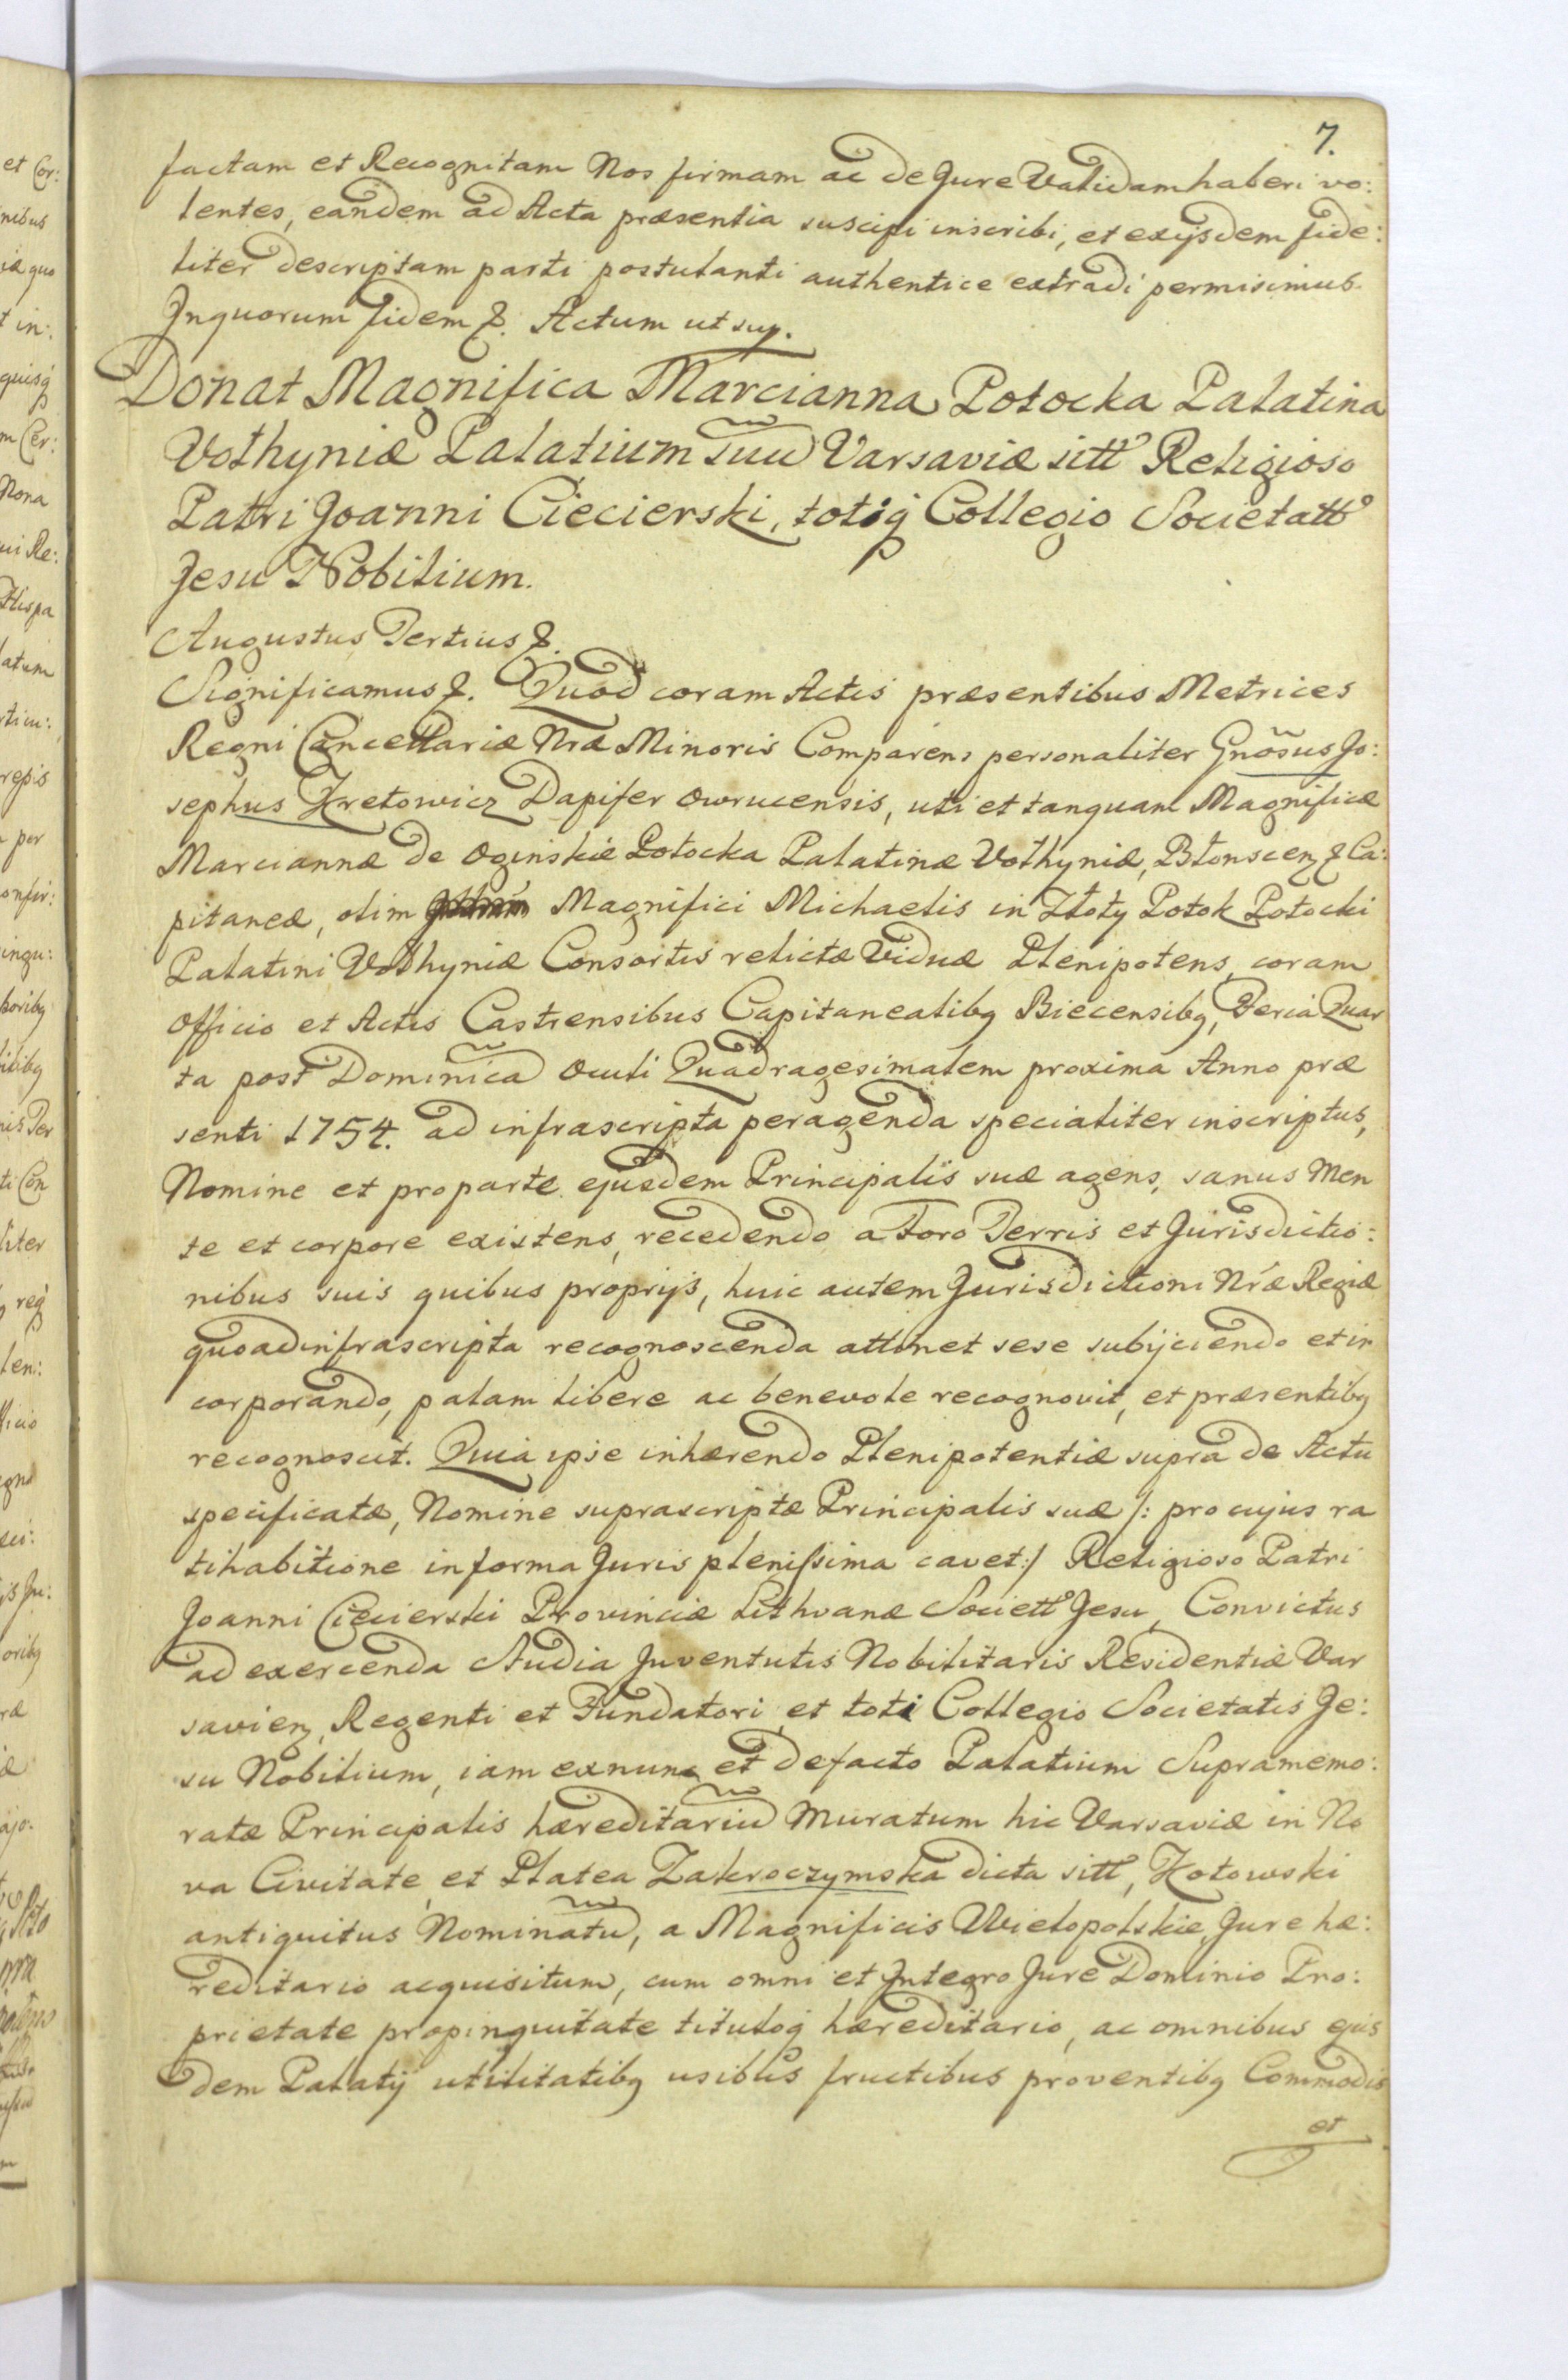 7.
factam et Recognitam Nos firmam ac de Jure Validam haberi vo:
lentes, eandem ad Acta præsentia suscipi inscribi, et exijsdem fide:
liter descriptam parti postulanti authentice extradi permisimus.
Inquorum fidem &. Actum ut sup.
Donat Magnifica Marcianna Potocka Palatina
Wołhyniæ Palatium suũ Varsaviæ sitt° Religioso
Patri Joanni Ciecierski, totiq́ Collegio Societatt°
Jesu Nobilium.
Augustus Tertius &.
Significamus &. Quod coram Actis præsentibus Metrices
Regni Cancellariæ Nræ Minoris Comparens personaliter Gnõsus Jo:
sephus Kretowicz Dapifer Owrucensis, uti et tanquam Magnificæ
Marciannæ de Ogińskie Potocka Palatinæ Wołhyniæ, Błonscen & Ca:
pitaneæ, olim Magnifici Michaelis in Złoty Potok Potocki
Palatini Wołhyniæ Consortis relictæ Viduæ Plenipotens, coram
Officio et Actis Castrensibus Capitanealibq Biecensibq, Feria Quar
ta post Dominicã Oculi Quadragesimalem proxima Anno præ
senti 1754. ad infrascripta peragenda specialiter inscriptus,
Nomine et pro parte ejusdem Principalis suæ agens, sanus Men
te et corpore existens, recedendo a Foro Terris et Jurisdictio:
nibus suis quibus proprijs, huic autem Jurisdictioni Nræ Regiæ
quoad infrascripta recognoscenda attinet sese subijciendo et in
corporando, palam libere ac benevole recognovit, et præsentibq
recognoscit. Quia ipse inhærendo Plenipotentiæ supra de Actu
specificatæ, Nomine suprascriptæ Principalis suæ /: pro cujus ra
tihabitione in forma Juris plenissima cavet :/ Religioso Patri
Joanni Ciecierski Provinciæ Lithvanæ Societt° Jesu, Convictus
ad exercenda Studia Juventutis Nobilitaris Residentiæ Var
savien, Regenti et Fundatori et toti Collegio Societatis Je:
su Nobilium, iam exnunc et defacto Palatium Supramemo:
ratæ Principalis hæreditariũ muratum hic Varsaviæ in No
va Civitate, et Platea Zakroczymska dicta sitt°, Kotowski
antiquitus Nominatũ, a Magnificis Wielopolskie Jure hæ:
reditario acquisitum, cum omni et Integro Jure Dominio Pro:
prietate propinquitate tituloq́ hæreditario, ac omnibus ejus
dem Palatij utilitatibq usibus fructibus proventibq Commodis
et